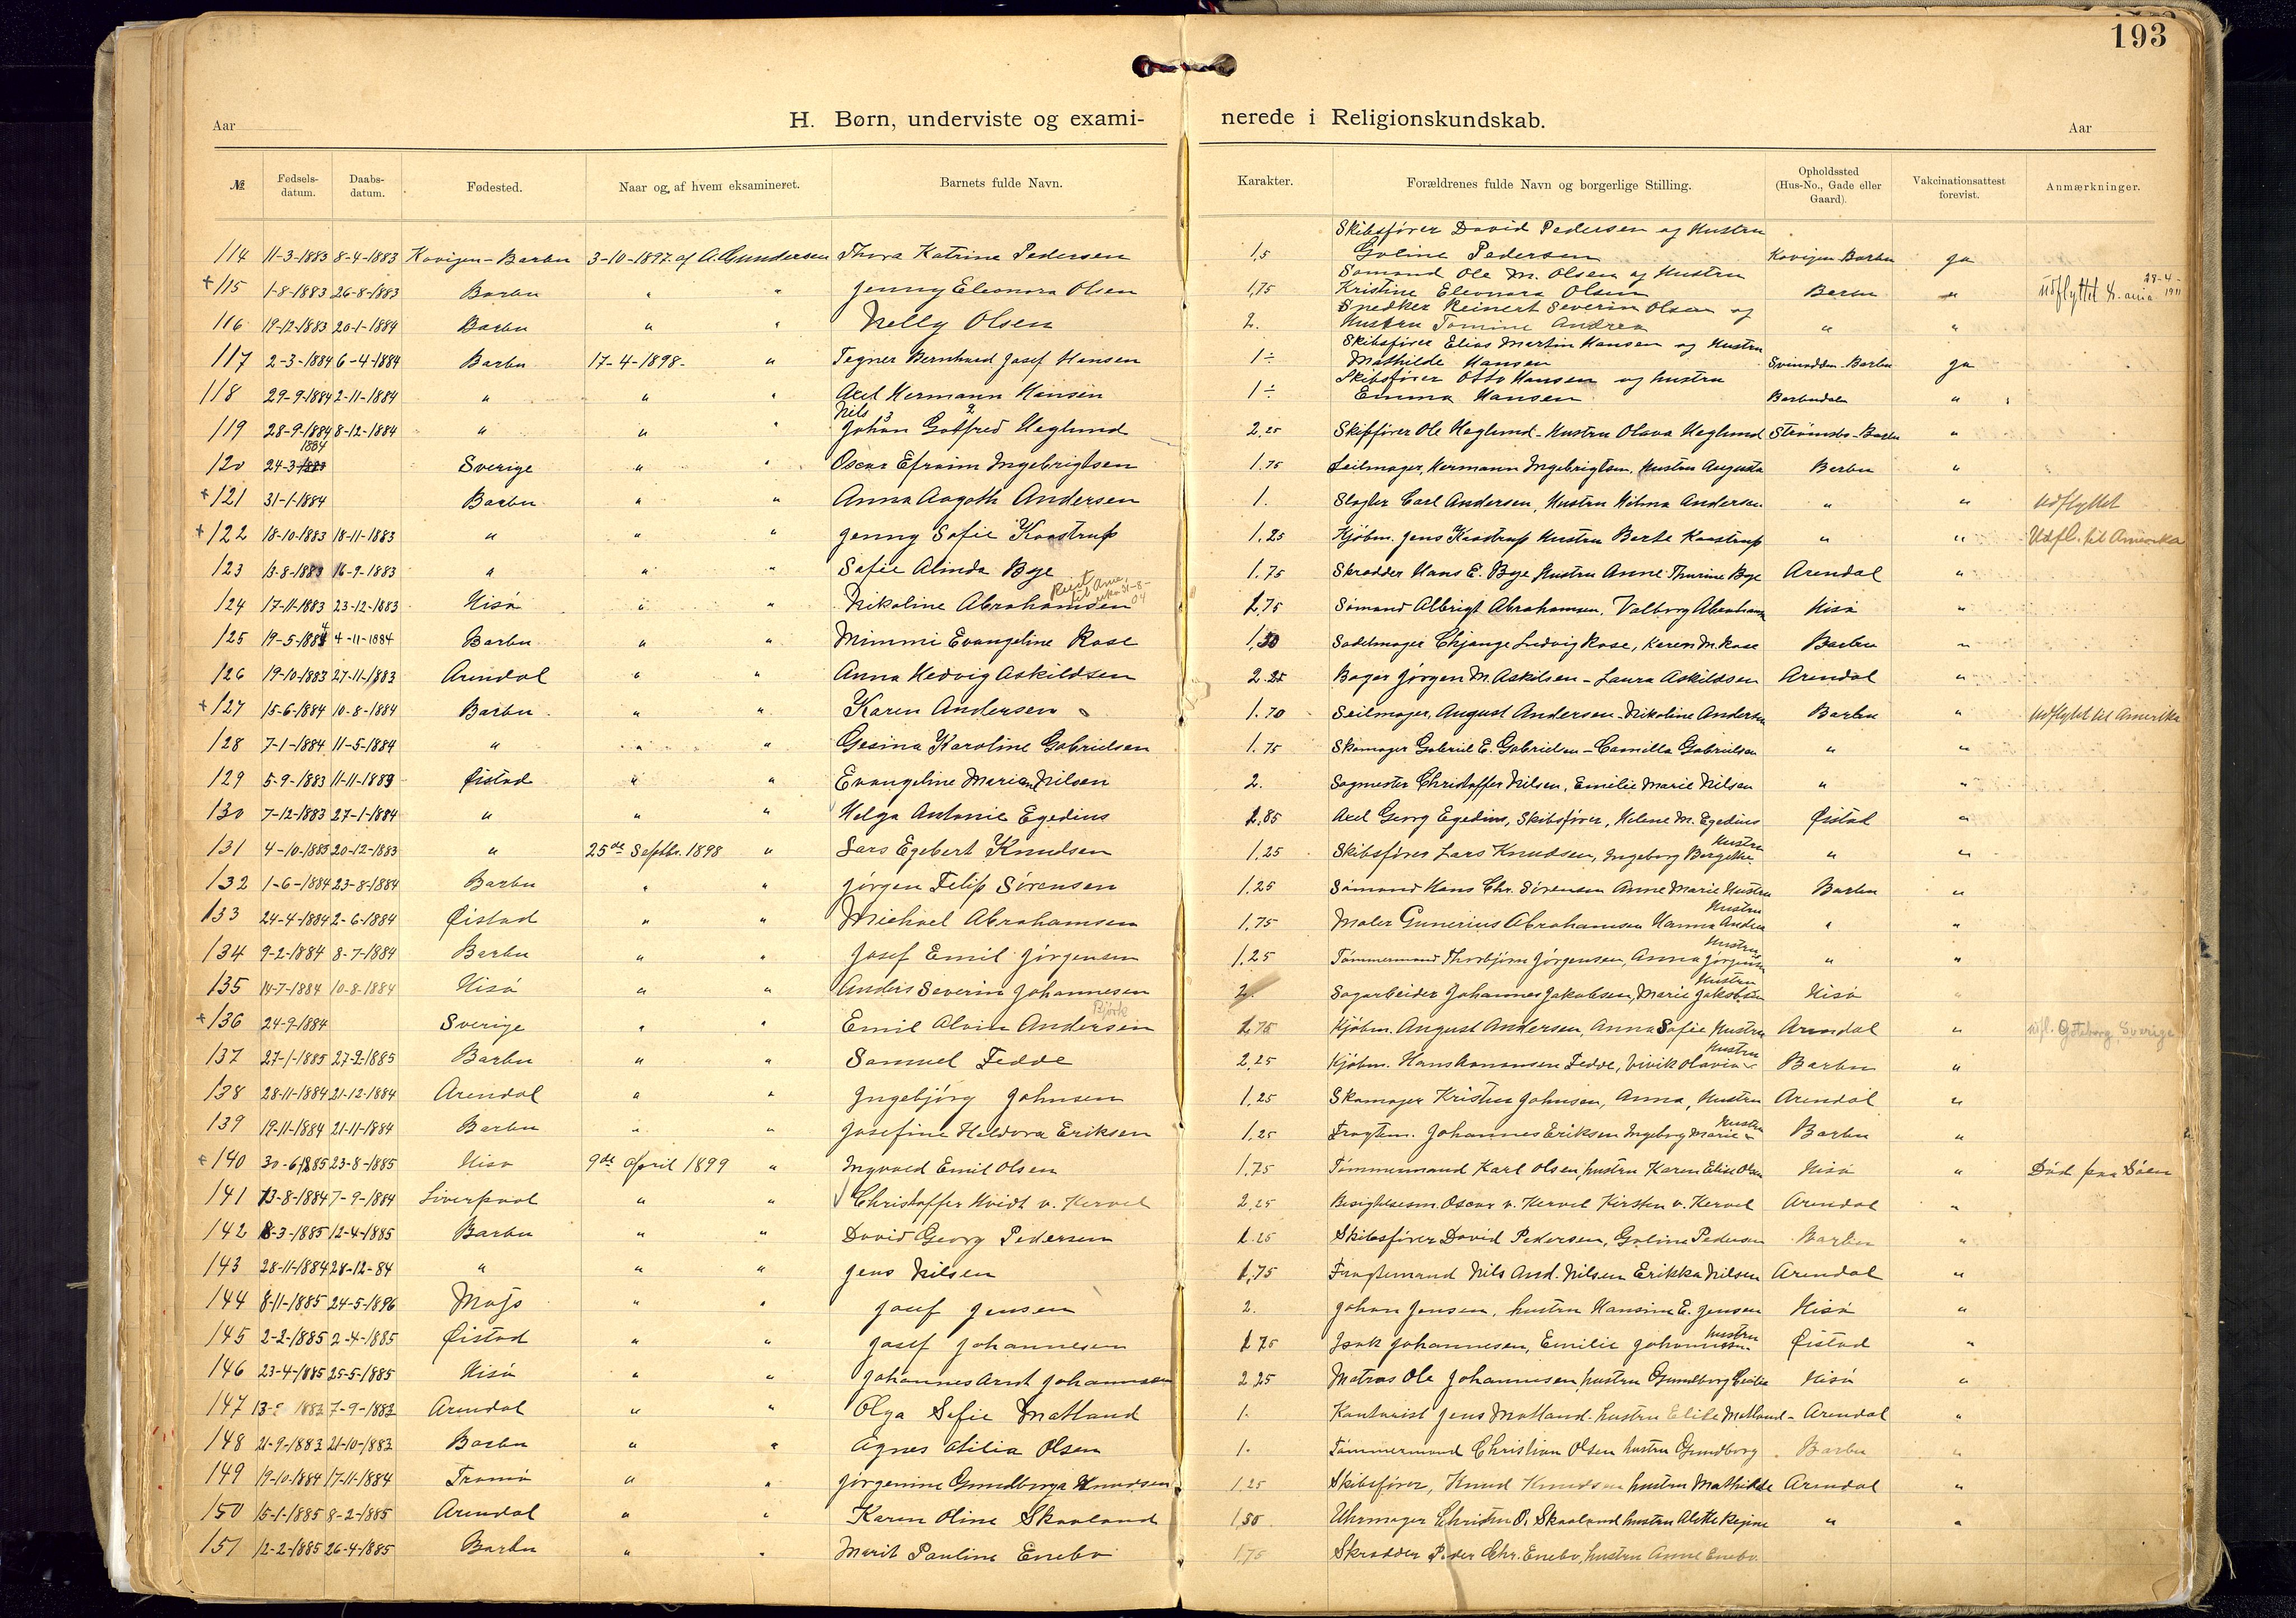 193
Aar
H. Børn, underviste og exami-
nerede i Religionskundskab.
Aar
№ Fødsels-datum. Daabs-datum. Fødested. Naar og af hvem eksamineret. Barnets fulde Navn. Karakter. Forældrenes fulde Navn og borgerlige Stilling. Opholdssted (Hus-No., Gade eller Gaard). Vakcinationsattest forevist. Anmærkninger.
114 11-3-1883 8-4-1883 Kovigen-Barbu 3-10-1897 af A. Gundersen Thora Katrine Pedersen 1,5 Skibsfører David Pedersen og Hustru Goline Pedersen Kovigen Barbu ja
+115 1-8-1883 26-8-1883 Barbu " " Jenny Eleonora Olsen 1,75 Sømand Ole M. Olsen og Hustru Kristine Eleonora Olsen Barbu " udflyttet 28-4-1911
116 19-12-1883 20-1-1884 Barbu " " Nelly Olsen 2. Snedker Reinert Severin Olsen og Hustru Tomine Andrea " "
117 2-3-1884 6-4-1884 Barbu 17-4-1898- " Tegner Bernhard Josef Hansen 1÷ Skibsfører Elias Martin Hansen og Hustru Mathilde Hansen Barbu ja
118 29-9-1884 2-11-1884 " " " Axel Hermann Hansen 1÷ Skibsfører Otto Hansen og hustru Emma Hansen Barbudalen "
119 28-9-1884 8-12-1884 " " " Nils Johan Gotfred Heglund 2,25 Skibfører Ole Heglund-Hustru Olava Heglund Strømsbo-Barbu "
120 24-3-1884 Sverige " " Oscar Efraim Ingebrigtsen 1.75 Seilmager, Hermann Ingebrigtsen, Hustru Augusta Barbu "
+121 31-1-1884 Barbu " " Anna Aagoth Andersen 1. Slagter Carl Andersen, Hustru Hilma Andersen " " Udflyttet
+122 18-10-1883 18-11-1883 " " " Jenny Sofie Kaastrup 1.25 Kjøbm. Jens Kaastrup Hustru Berte Kaastrup " " Udfl. til Amerika
123 13-8-1883 16-9-1883 " " " Sofie Alinda Bye 1.75 Skrædder Hans E. Bye Hustru Anne Thurine Bye Arendal "
124 17-11-1883 23-12-1883 Hisø " " Nikoline Abrahamsen Reist til Amerika 31-8-04 1,75 Sømand Albrigt Abrahamsen. Valborg Abrahams Hisø "
125 19-5-1884 4-11-1884 Barbu " " Mimmi Evangeline Rose 1,50 Sadelmager Ludvig Rose, Karen M. Rose Barbu "
126 19-10-1883 27-11-1883 Arendal " " Anna Hedvig Askildsen 2.25 Bager Jørgen M. Askilsen-Laura Askildsen Arendal "
+127 15-6-1884 10-8-1884 Barbu " " Karen Andersen 1.70 Seilmager, August Andersen-Nikoline Andersen Barbu " Udflyttet til Amerika
128 7-1-1884 11-5-1884 " " " Gesina Karoline Gabrielsen 1.75 Skomager Gabriel E. Gabrielsen-Camilla Gabrielsen " "
129 5-9-1883 11-11-1883 Øistad " " Evangeline Marie Nilsen 2. Sagmester Christoffer Nilsen, Emilie Marie Nilsen " "
130 7-12-1883 27-1-1884 " " " Helga Antonie Egedius 1,85 Axel Georg Egedius, Skibsfører, Helene M. Egedius Øistad "
131 4-10-1883 20-12-1883 " 25de Septbr. 1898 " Lars Egebert Knudsen 1.25 Skibsfører Lars Knudsen, Ingeborg Bergithe Hustru " "
132 1-6-1884 23-8-1884 Barbu " " Jørgen Filip Sørensen 1.25 Sømand Hans Chr. Sørensen Anne Marie Hustru Barbu "
133 24-4-1884 2-6-1884 Øistad " " Michael Abrahamsen 1,75 Maler Gunerius Abrahamsen Hanna Andrea Hustru " "
134 9-2-1884 8-7-1884 Barbu " " Josef Emil Jørgensen 1,25 Tømmermand Thorbjørn Jørgensen, Anna Jørgensen Hustru " "
135 14-7-1884 10-8-1884 Hisø " " Anders Severin Johannesen 2. Sagarbeider Johannes Jakobsen, Marie Jakobsen Hustru Hisø "
+136 24-9-1884 Sverige " " Emil Alvin Andersen Bjørk 1,75 Kjøbm. August Andersen, Anna Sofie Hustru Arendal " udfl. Gøteborg Sverige
137 27-1-1885 27-2-1885 Barbu " " Samuel Fedde 2,25 Kjøbm. Hans Fedde, Olavia Hustru Barbu "
138 28-11-1884 21-12-1884 Arendal " " Ingebjørg Johnsen 1,25 Skomager Kristen Johnsen, Anna, Hustru Arendal "
139 19-11-1884 21-11-1884 Barbu " " Josefine Heldora Eriksen 1,25 Fragtem. Johannes Eriksen Ingeborg Marie Hustru Barbu "
+140 30-6-1885 23-8-1885 Hisø 9de April 1899 " Ingvald Emil Olsen 1.75 Tømmermand Karl Olsen, hustru Karen Elise Olsen Hisø " Død paa Søen
141 13-8-1884 7-9-1884 Liverpool " " Christoffer Hvidt v. Kervel 2,25 Besigtelsesm. Oscar v. Kervel Kirsten v. Kervel Arendal "
142 8-3-1885 12-4-1885 Barbu " " David Georg Pedersen 1.25 Skibsfører David Pedersen, Goline Pedersen Barbu "
143 28-11-1884 28-12-84 " " " Jens Nilsen 1,75 Fragtemand Nils And. Nilsen Erikka Nilsen Arendal "
144 8-11-1885 24-5-1896 " " Josef Jensen 2. Johan Jensen, hustru Hansine E. Jensen Hisø "
145 2-2-1885 2-4-1885 Øistad " " Josef Johannesen 1.75 Isak Johannesen, Emilie Johannesen hustru Øistad "
146 23-4-1885 25-5-1885 Hisø " " Johannes Arnt Johannessen 2,25 Matros Ole Johannesen hustru Gundborg Hisø "
147 1883 7-9-1883 Arendal " " Olga Sofie Matland 1. Kontorist Jens Matland-hustru Elise Matland- Arendal "
148 21-9-1883 21-10-1883 Barbu " " Agnes Otilia Olsen 1. Tømmermand Christian Olsen hustru Gundborg Barbu "
149 19-10-1884 17-11-1884 Tromø " " Jørgenine Gundborga Knudsen 1.25 Skibsfører, Knud Knudsen hustru Mathilde Arendal "
150 15-1-1885 8-2-1885 Arendal " " Karen Oline Skaaland 1,50 Uhrmager Christen O. Skaaland hustru Alette Regine " "
151 12-2-1885 26-4-1885 Barbu " " Marit Pauline Enebo 1,75 Skrædder Peder Chr. Enebo, hustru Anne Enebo.